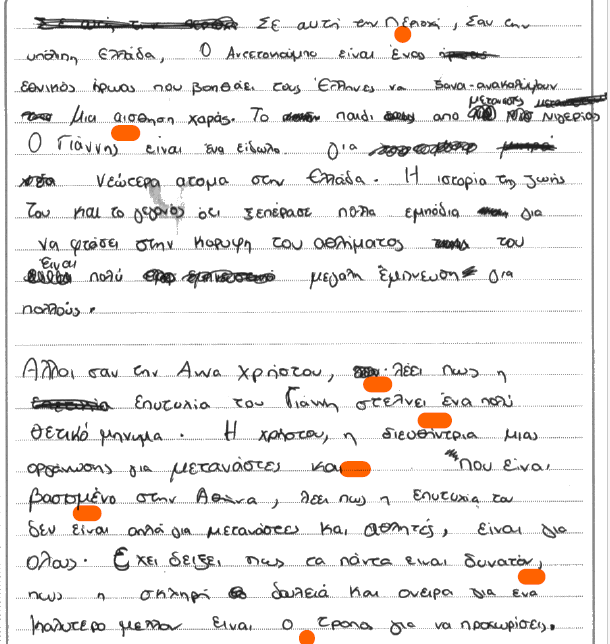 Σε αυτή την Περιοχή, Σαν την
υπόλη Ελλάδα, Ο Αντετοκούμπο είναι ένας
εθνικός ήρωας που βοηθάει τους Έλληνες να ξανα-ανακαλύψουν
Μια αισθηση χαράς. Το παιδι απο μετανάστες Νιγερίας
Ο Γιάννης είναι ένα είδωλο για
νεώτερα ατομα στην Ελλάδα. Η ιστορία της ζωής
Του και το γεγονός ότι ξεπέρασε πολλα εμπόδια για
να φτάσει στην κορυφη του αθλήματος του
είναι πολύ μεγαλη έμπνευση για
πολλούς.
Αλλοι σαν την Αννα χρήστου, λέει πως η
επιτυχία του Γιάννη στελνει ένα πολύ
θετικό μηνυμα. Η χρήστου, η διευθύντρια μιας
οργάνωσης για μετανάστες και που είναι
βασισμένο στην Αθήνα, λέει πως η επιτυχία του
δεν είναι απλά για μετανάστες και αθλητές, είναι για
ολους. Εχει δείξει πως τα πάντα ειναι δυνατόν,
πως η σκληρή δουλειά και ονειρα για ένα
καλυτερο μελλον ειναι ο τροπο για να προχωρίσεις.